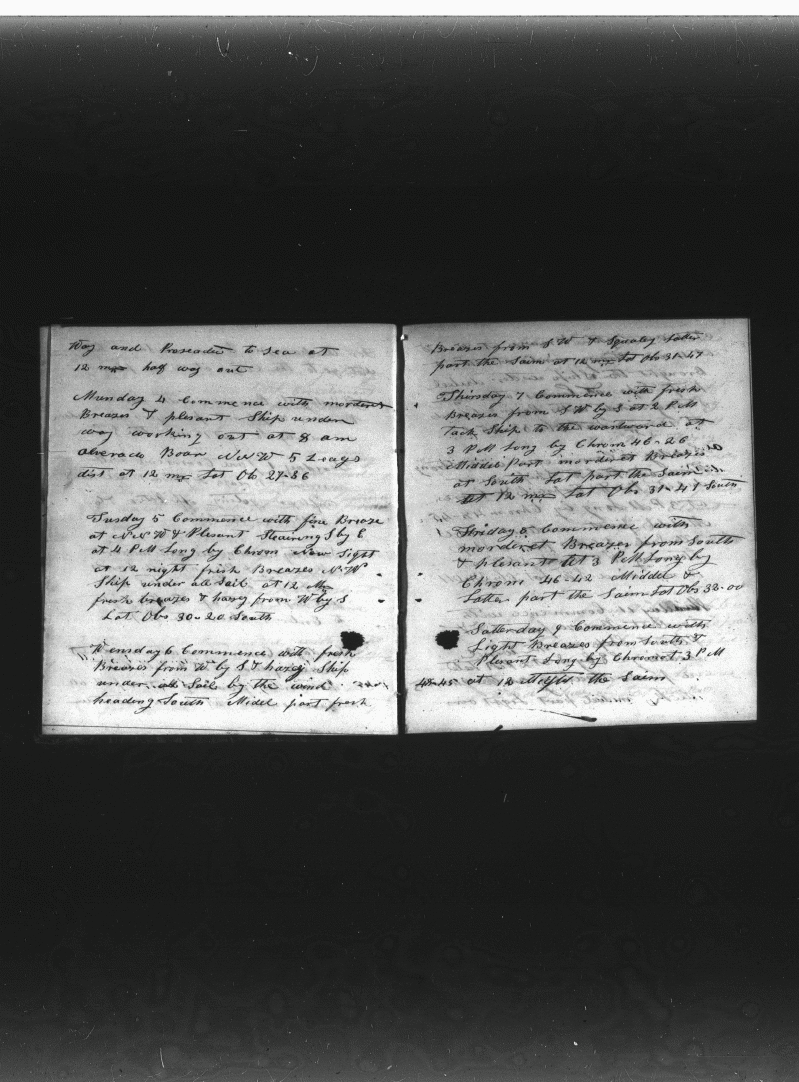 Way and Proseaded to sea at
12 mn half way out
Munday 4 Commence with morderet
Breazes & plesant Ship under
way working out at 8 am
alverado Boar NNW 5 Leags
dist at 12 mr Lat Ob 27-36
Tusday 5 Commence with fine Breaze
at NNW & Plesant Stearing S by E
at 4 PM Long by Chrom New Sight
at 12 night frish Breazes NW
Ship under all Sail at 12 M
fresh breazes & hazy from W by S
Lat Obs 30-20 South
Wensday 6 Commence with fresh
Breazes from W by S & hazey Ship
under all Sail by the wind
heading South Midel part fresh
Breazes from SW & Squaley Latter
part the Saim at 12 mr Lat Obs 31-47
Thirsday 7 Commence with fresh
Breazes from SW by S at 2 PM
Tack Ship to the wastward at
3 PM Long by Chrom 46-26
Middel Part morderet Breazes
at South Lat part the Saim
At 12 mr Lat Obs 31-41 South
Friday 8 Commence with
morderet Breazes from South
& plesant At 3 PM Long by
Chrom 46-42 Middel &
Latter part the Saim Lat Obs 32-00
Satterday 9 Commence with
Light Breazes from South &
Plesant Long by Chrom at 3 PM
45-45 at 12 the Saim